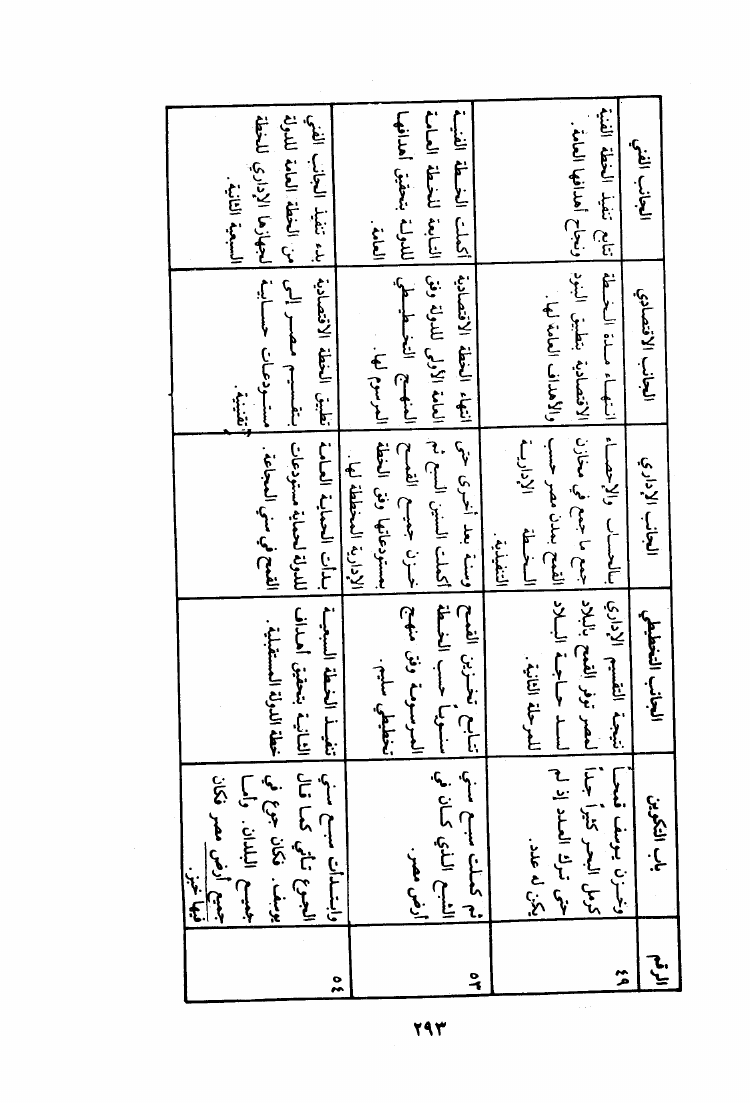 الرقم
باب التكوين
الجانب التخطيطي
الجانب الإداري
الجانب الاقتصادي
الجانب الفني
٤٩
وخـزن يـوسف قمحـاً
كرمل البحـر كثيراً جـداً
حتى ترك العـدد إذ لم
يكن له عدد.
نتيجة التقسيم الإداري
لمصر توفر القمح بالبلاد
لسـد حـاجـة البـلاد
للمرحلة الثانية.
بـالحسـاب والإحصـاء
جمع ما جمع في مخازن
القمح بمدن مصر حسب
الـخـطـة الإداريـة
التنفيذية.
انـتـهـاء مـدة الـخـطـة
الاقتصادية بتطبيق البنود
والأهداف العامة لها.
تتابع تنفيذ الخطة الفنية
ونجاح أهدافها العامة.
٥٣
ثم كملـت سبـع سني
الشبع الـذي كـان في
أرض مصر.
تتـابـع تخـزيـن القمـح
سنـويـاً حسب الخطة
المـرسـومـة وفق منهـج
تخطيطي سليم.
وسنـة بعد أخـرى حتى
أكملت السنين السبع ثم
خــزن جميـع القمــح
بمستودعاتها وفق الخطة
الإدارية المخططة لها.
انتهاء الخطة الاقتصادية
العامة الأولى للدولة وفق
المنهـج التخـطـيـطي
المرسوم لها.
أكملت الخـطـة الفنيـة
التـابعـة للخـطـة العـامـة
للدولـة بتحقيق أهدافهـا
العامة.
٥٤
وابتـدأت سبـع سني
الجـوع تـأتي كمـا قـال
يوسف. فكـان جوع في
جميـع البلدان. وأمـا
جميع أرض مصر فكان
فيها خبز.
تنفيـذ الخـطـة السبعيـة
الثانيـة بتحقيق أهـداف
خطة الدولة المستقبلية.
بـدأت الحمايـة العـامـة
للدولة لحماية مستودعات
القمح في سني المجاعة.
تطبيق الخطة الاقتصادية
بـتـقـسـيـم مـصـر إلـى
مستـودعـات حسـابيـة
تقنينية.
بدء تنفيـذ الجـانب الفني
من الخطة العامة للدولة
لجهازها الإداري للخطة
السبعية الثانية.
٢٩٣